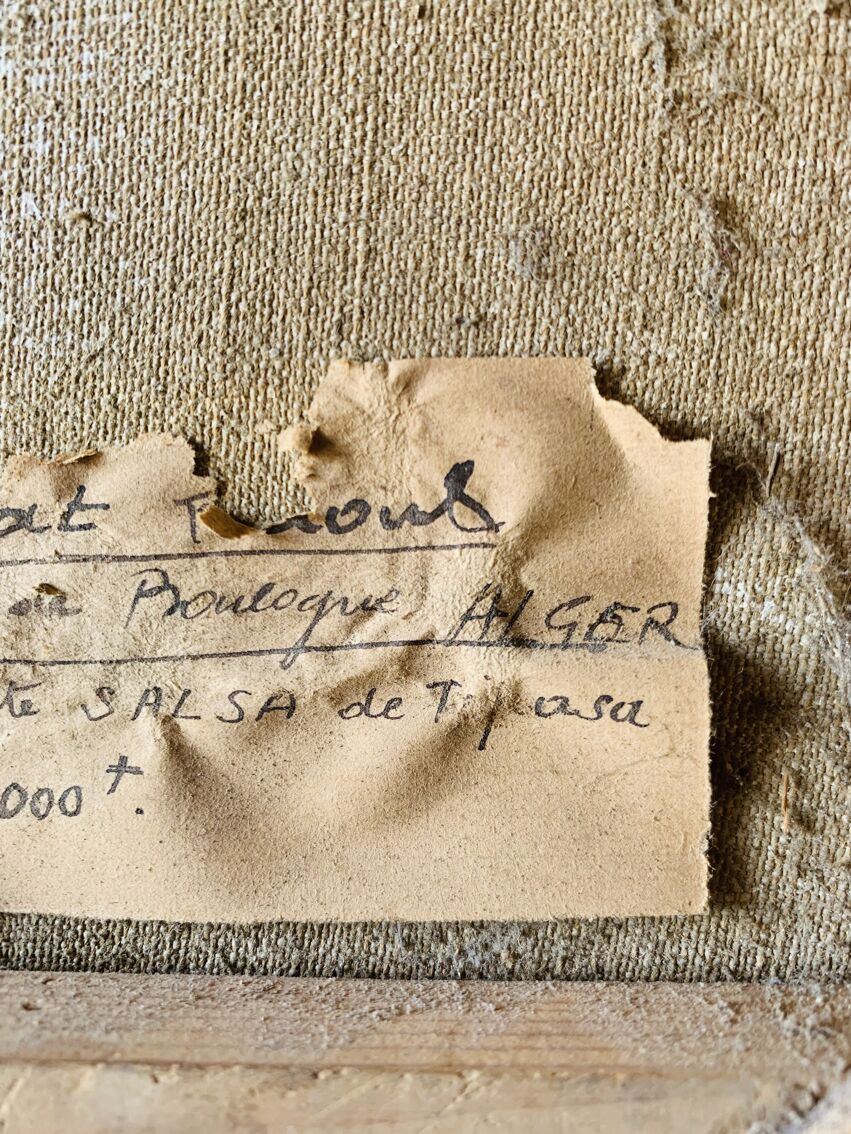 at Raoul
de Boulogne, ALGER
te SALSA de Tipasa
000 +.